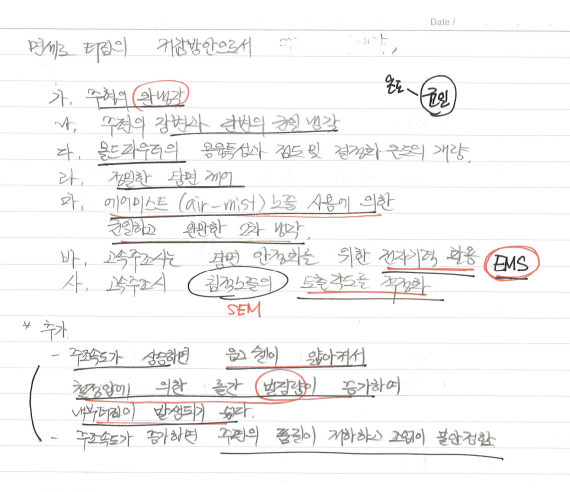 Date /
면세로 터짐의 저감방안으로서
온도 - 균일
가. 주형의 완냉각
나. 주편의 장변과 단변의 균일 냉각
다. 몰드파우더의 용융특성과 점도 및 결정화 온도의 개량.
라. 정밀한 탕면 제어
마. 에어미스트 (air-mist) 노즐 사용에 의한
균일하고 완만한 2차 냉각.
바. 고속주조시는 탕면 안정화를 위한 전자기력 활용 EMS
사. 고속주조시 침적노즐의 토출각도를 적정화
SEM
* 추가
- 주조속도가 상승하면 응고쉘이 얇아져서
철정압에 의한 롤간 벌징량이 증가하여
내부터짐이 발생되기 쉽다.
- 주조속도가 증가하면 주편의 품질이 저하하고 조업이 불안정함